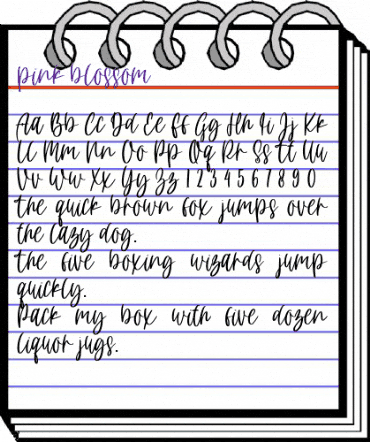 pink blossom
Aa Bb Cc Dd Ee Ff Gg Hh Ii Jj Kk
Ll Mm Nn Oo Pp Qq Rr Ss Tt Uu
Vv Ww Xx Yy Zz 1 2 3 4 5 6 7 8 9 0
the quick brown fox jumps over
the lazy dog.
the five boxing wizards jump
quickly.
Pack my box with five dozen
liquor jugs.